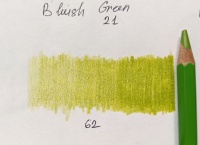 Bluish Green
21
62